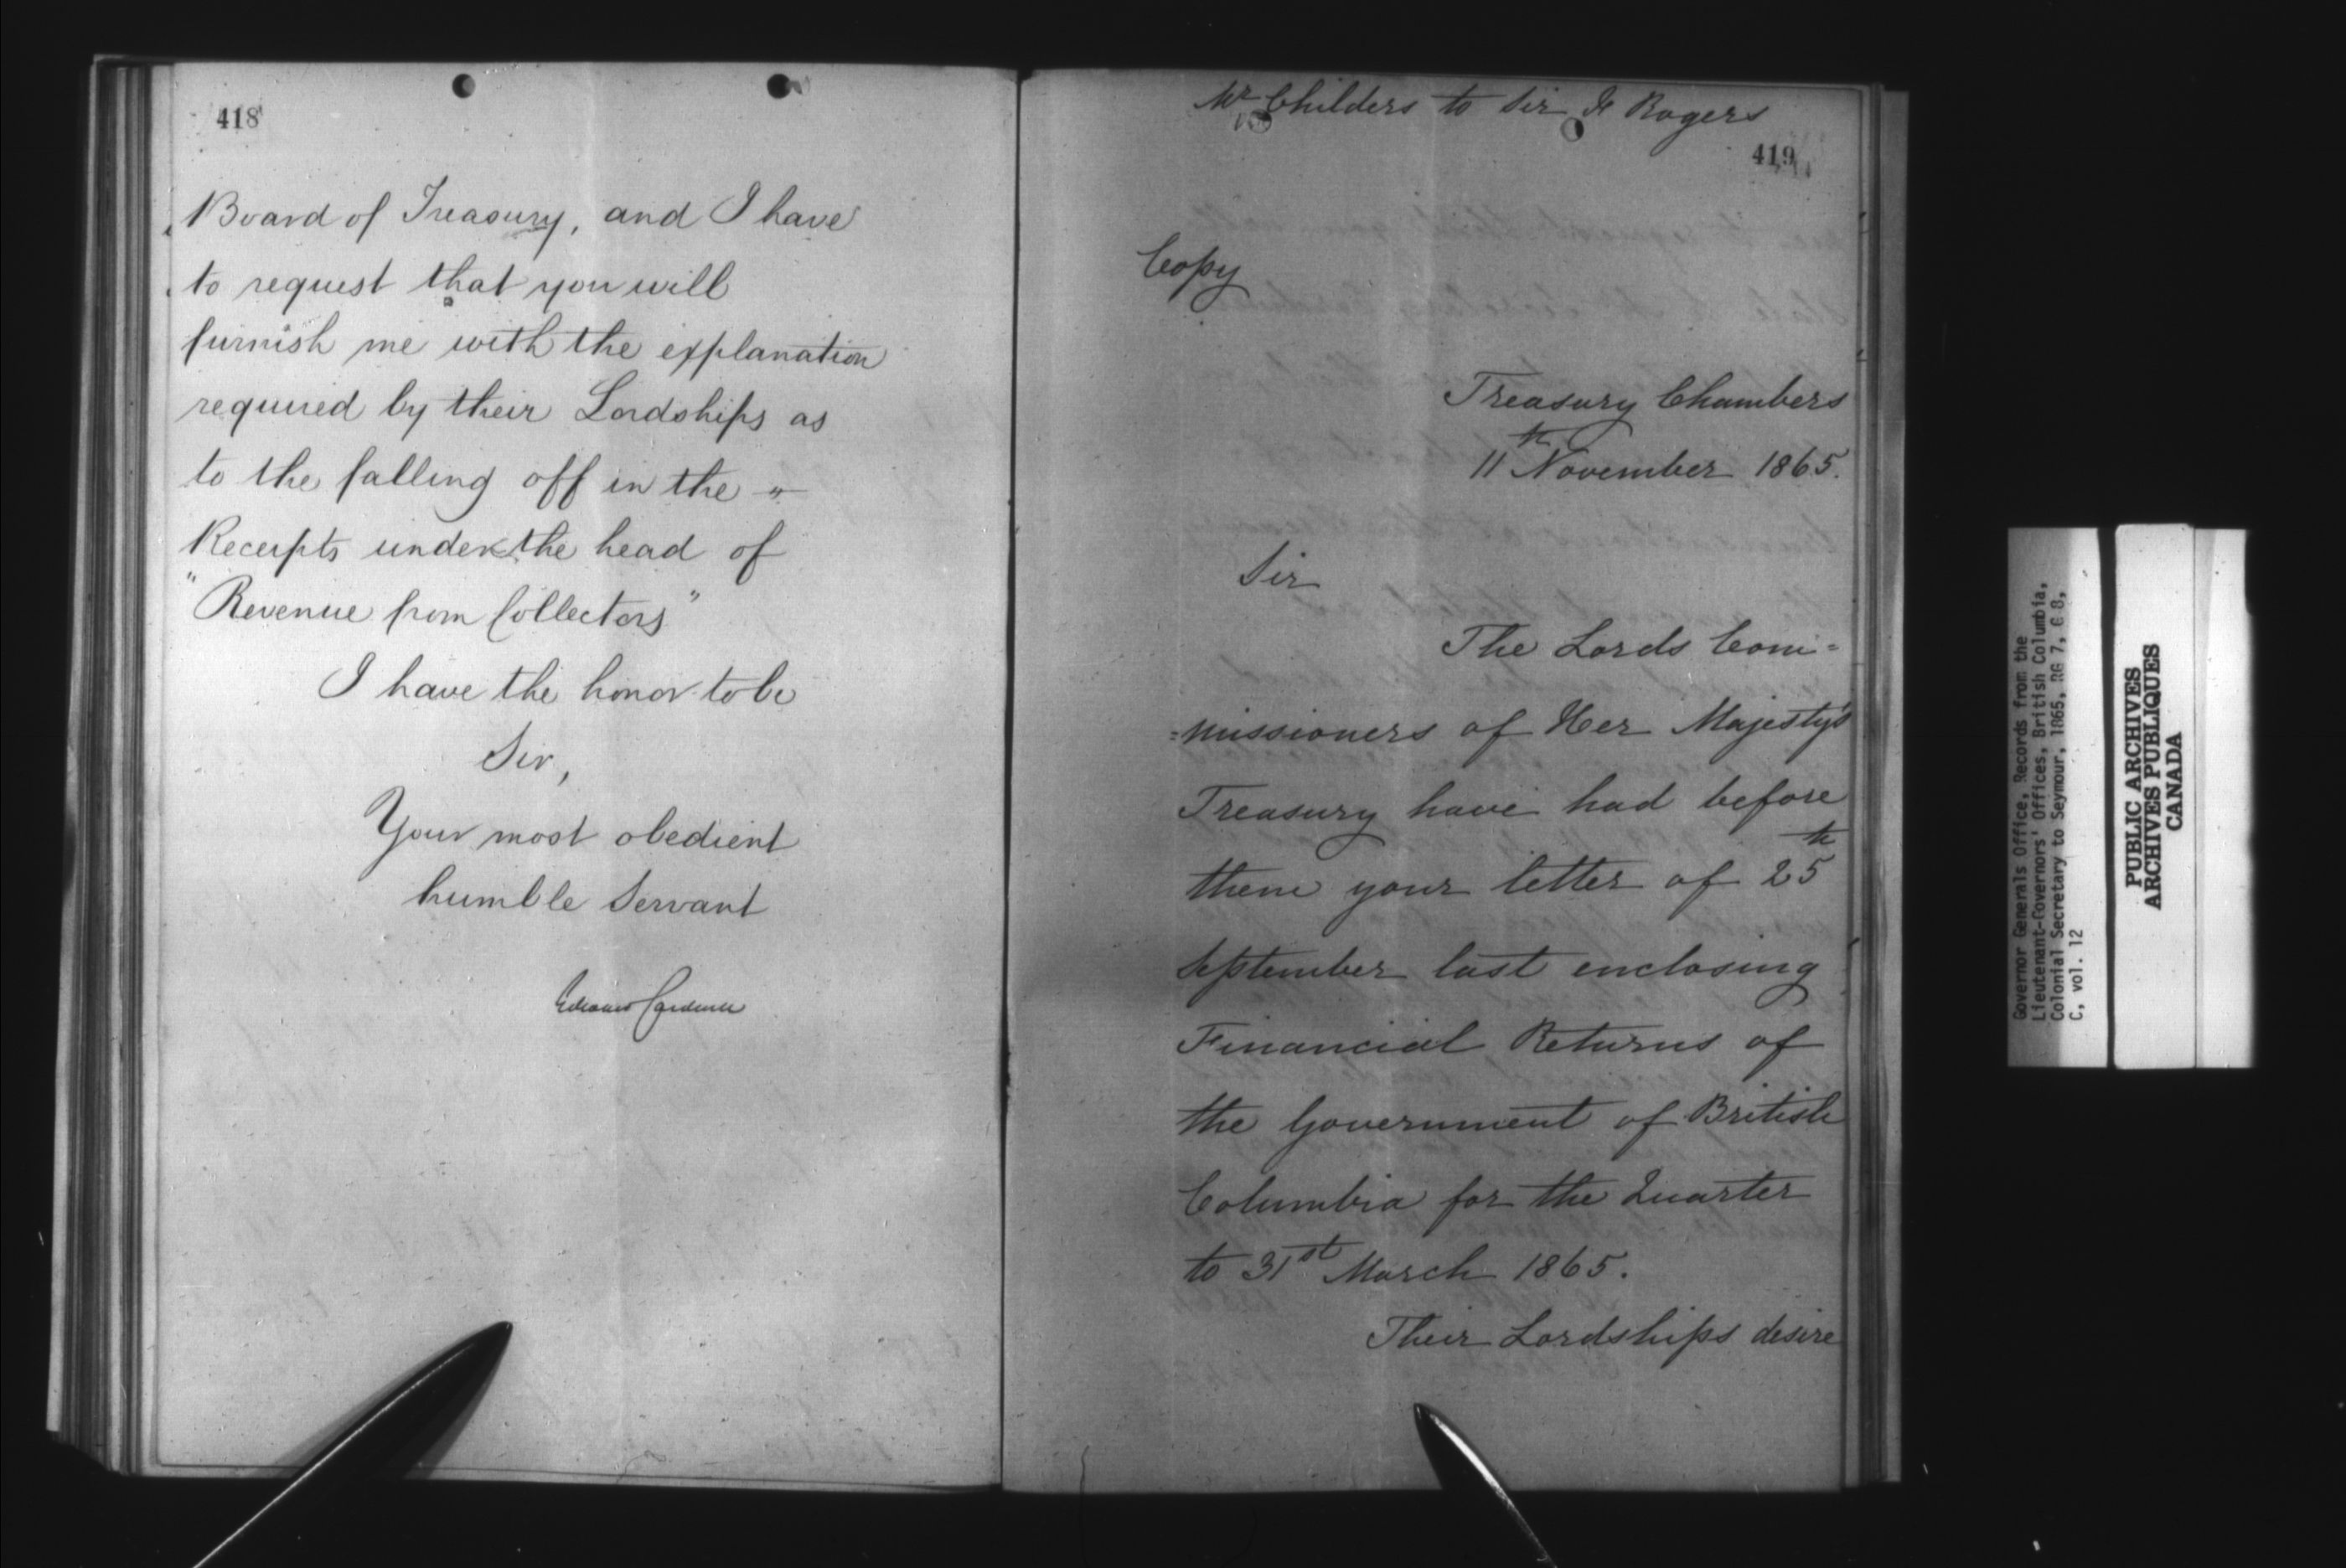 418
Board of Treasury, and I have
to request that you will
furnish me with the explanation
required by their Lordships as
to the falling off in the "
Receipts under the head of
"Revenue from Collectors"
I have the honor to be
Sir,
Your most obedient
humble Servant
Edward Cardwell
Mr Childers to Sir F Rogers
419
Copy
Treasury Chambers
11th November 1865.
Sir
The Lords Com=
=missioners of Her Majesty's
Treasury have had before
them your letter of 25th
September last enclosing
Financial Returns of
the Government of British
Columbia for the Quarter
to 31st March 1865.
Their Lordships desire
Governor Generals Office, Records from the
Lieutenant-Governors' Offices, British Columbia,
Colonial Secretary to Seymour, 1865, RG 7, G 8,
C, vol. 12
PUBLIC ARCHIVES
ARCHIVES PUBLIQUES
CANADA